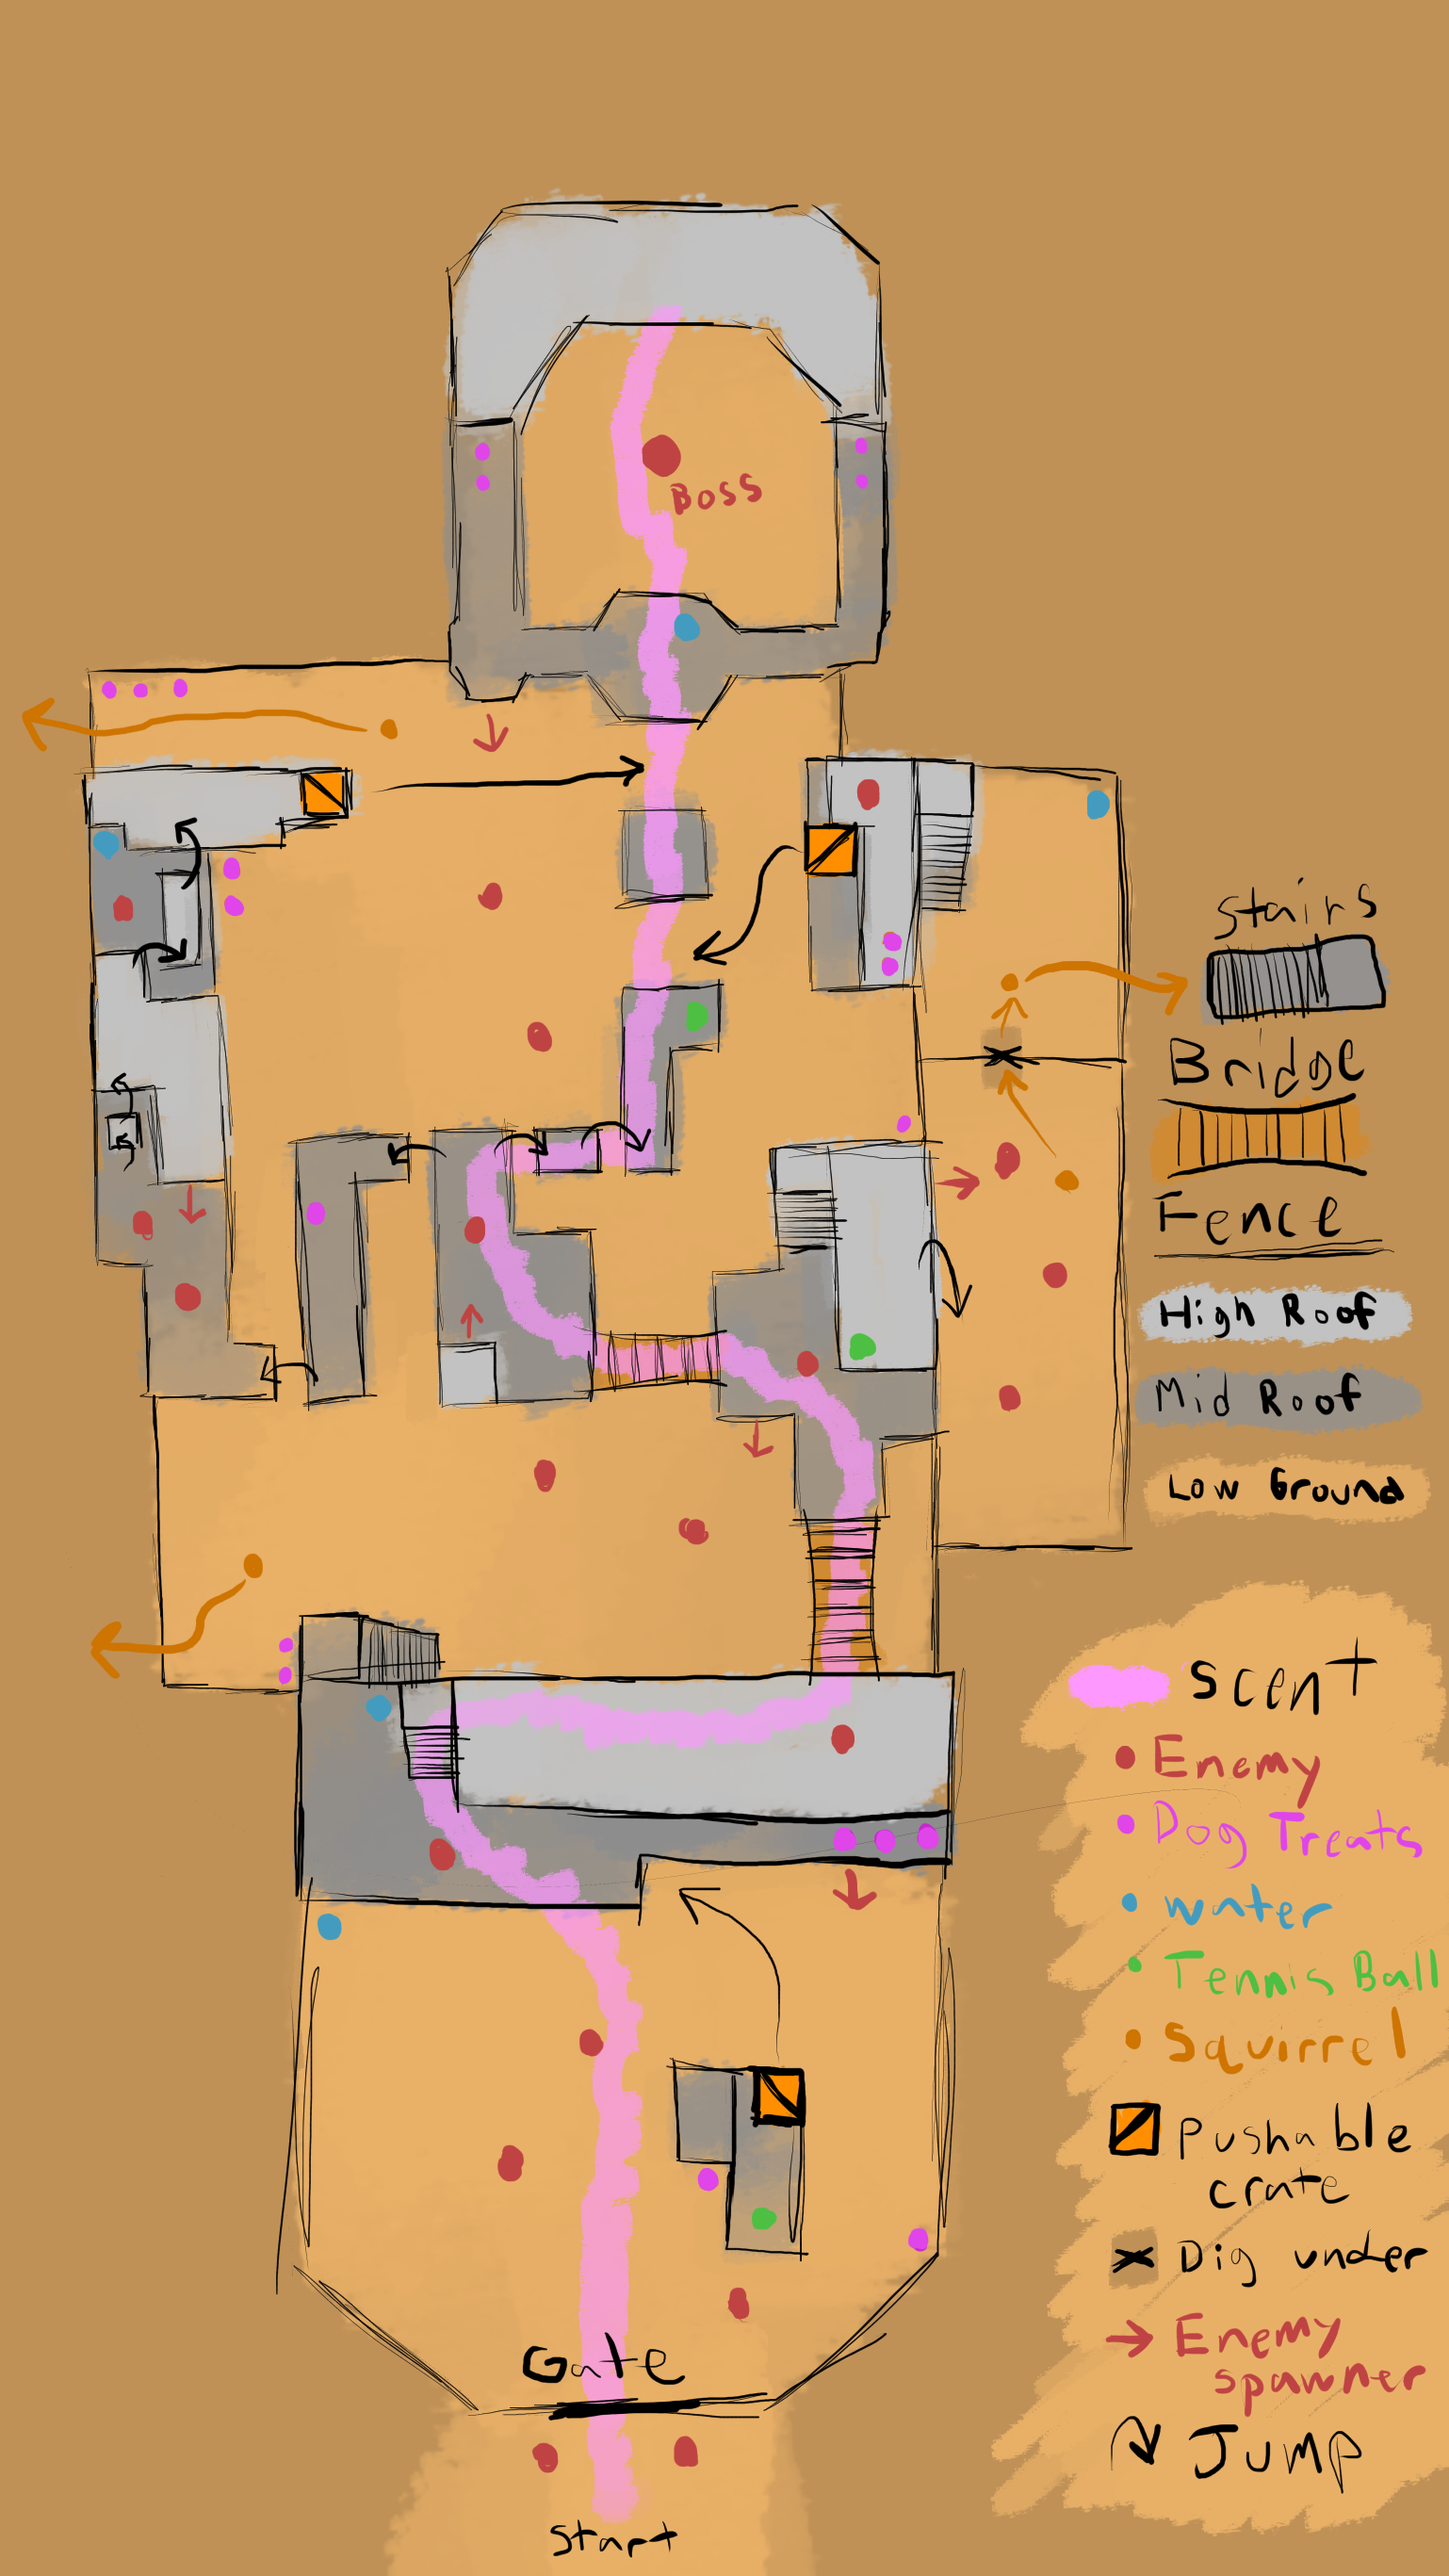 Boss
Stairs
Bridge
Fence
High Roof
Mid Roof
Low Ground
Scent
Enemy
Dog Treats
water
Tennis Ball
Squirrel
Pushable
crate
Dig under
Enemy
spawner
Jump
Gate
Start